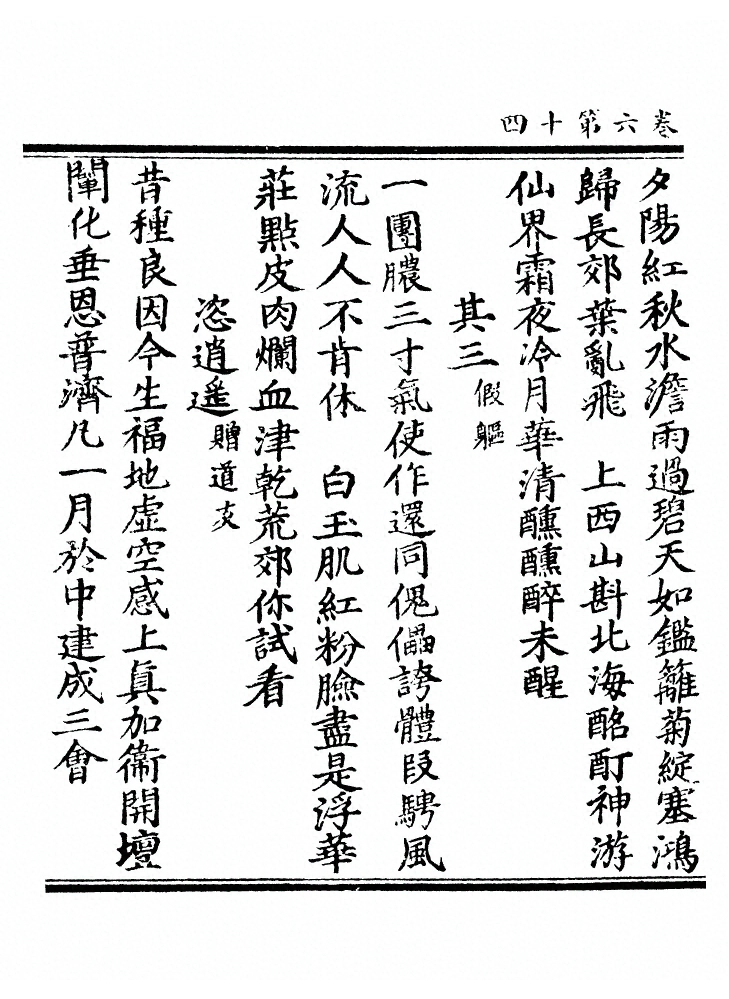 卷六第十四
夕陽紅秋水澹雨過碧天如鑑籬菊綻塞鴻
歸長郊葉亂飛　上西山斟北海酩酊神游
仙界霜夜冷月華清醺醺醉未醒
其三假軀
一團膿三寸氣使作還同傀儡誇體段騁風
流人人不肯休　白玉肌紅粉臉盡是浮華
莊點皮肉爛血津乾荒郊你試看
恣逍遙贈道友
昔種良因今生福地虛空感上眞加衞開壇
闡化垂恩普濟凡一月於中建成三會